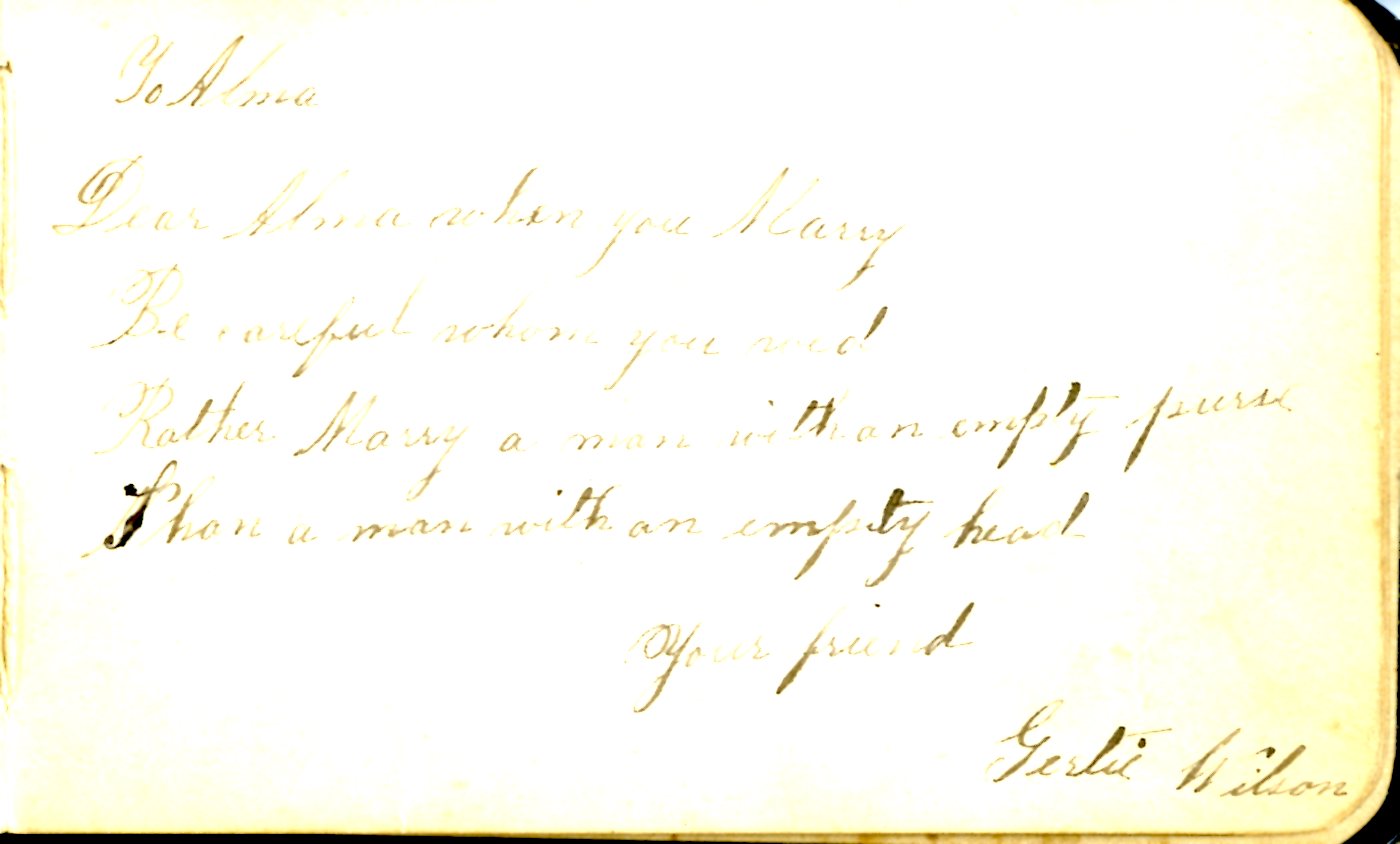 To Alma
Dear Alma when you Marry
Be careful whom you wed
Rather Marry a man with an empty purse
Than a man with an empty head
Your friend
Gertie Wilson